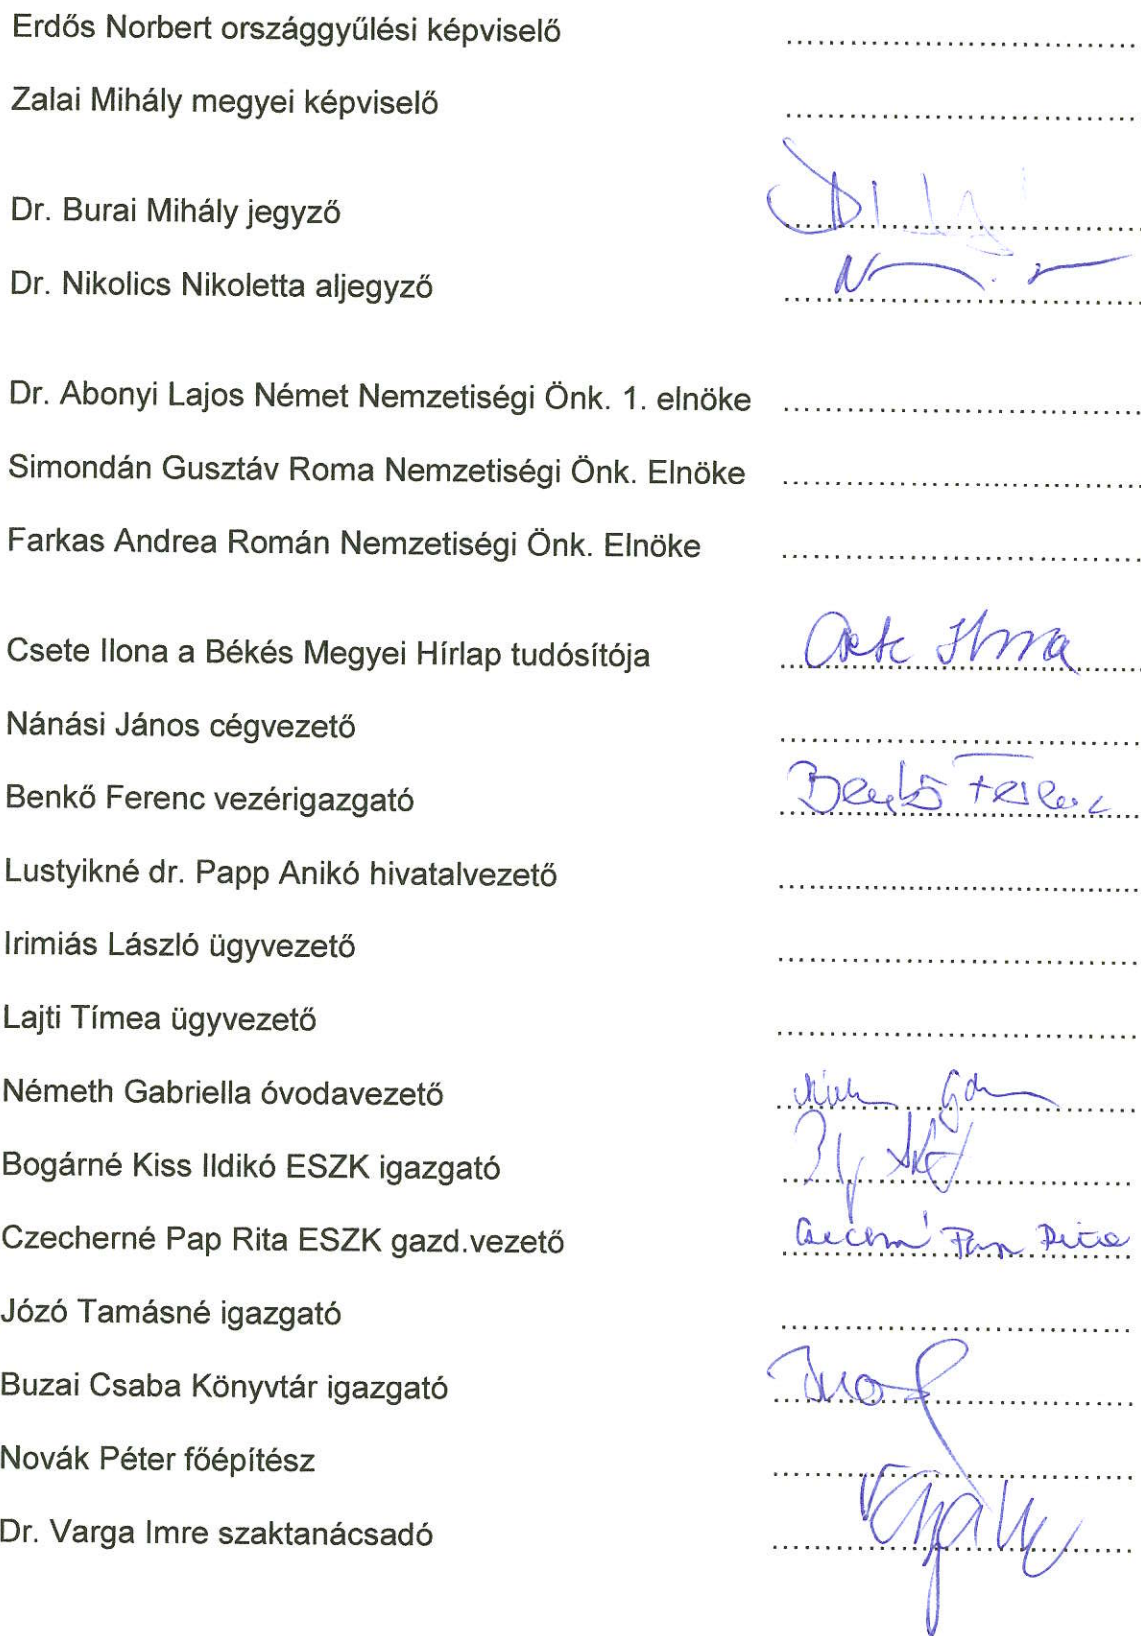 Erdős Norbert országgyűlési képviselő ....................................
Zalai Mihály megyei képviselő ....................................
Dr. Burai Mihály jegyző ....................................
Dr. Nikolics Nikoletta aljegyző ....................................
Dr. Abonyi Lajos Német Nemzetiségi Önk. 1. elnöke ....................................
Simondán Gusztáv Roma Nemzetiségi Önk. Elnöke ....................................
Farkas Andrea Román Nemzetiségi Önk. Elnöke ....................................
Csete Ilona a Békés Megyei Hírlap tudósítója Csete Ilona
Nánási János cégvezető ....................................
Benkő Ferenc vezérigazgató Benkő Ferenc
Lustyikné dr. Papp Anikó hivatalvezető ....................................
Irimiás László ügyvezető ....................................
Lajti Tímea ügyvezető ....................................
Németh Gabriella óvodavezető ....................................
Bogárné Kiss Ildikó ESZK igazgató ....................................
Czecherné Pap Rita ESZK gazd.vezető Czecherné Pap Rita
Józó Tamásné igazgató ....................................
Buzai Csaba Könyvtár igazgató ....................................
Novák Péter főépítész ....................................
Dr. Varga Imre szaktanácsadó ....................................